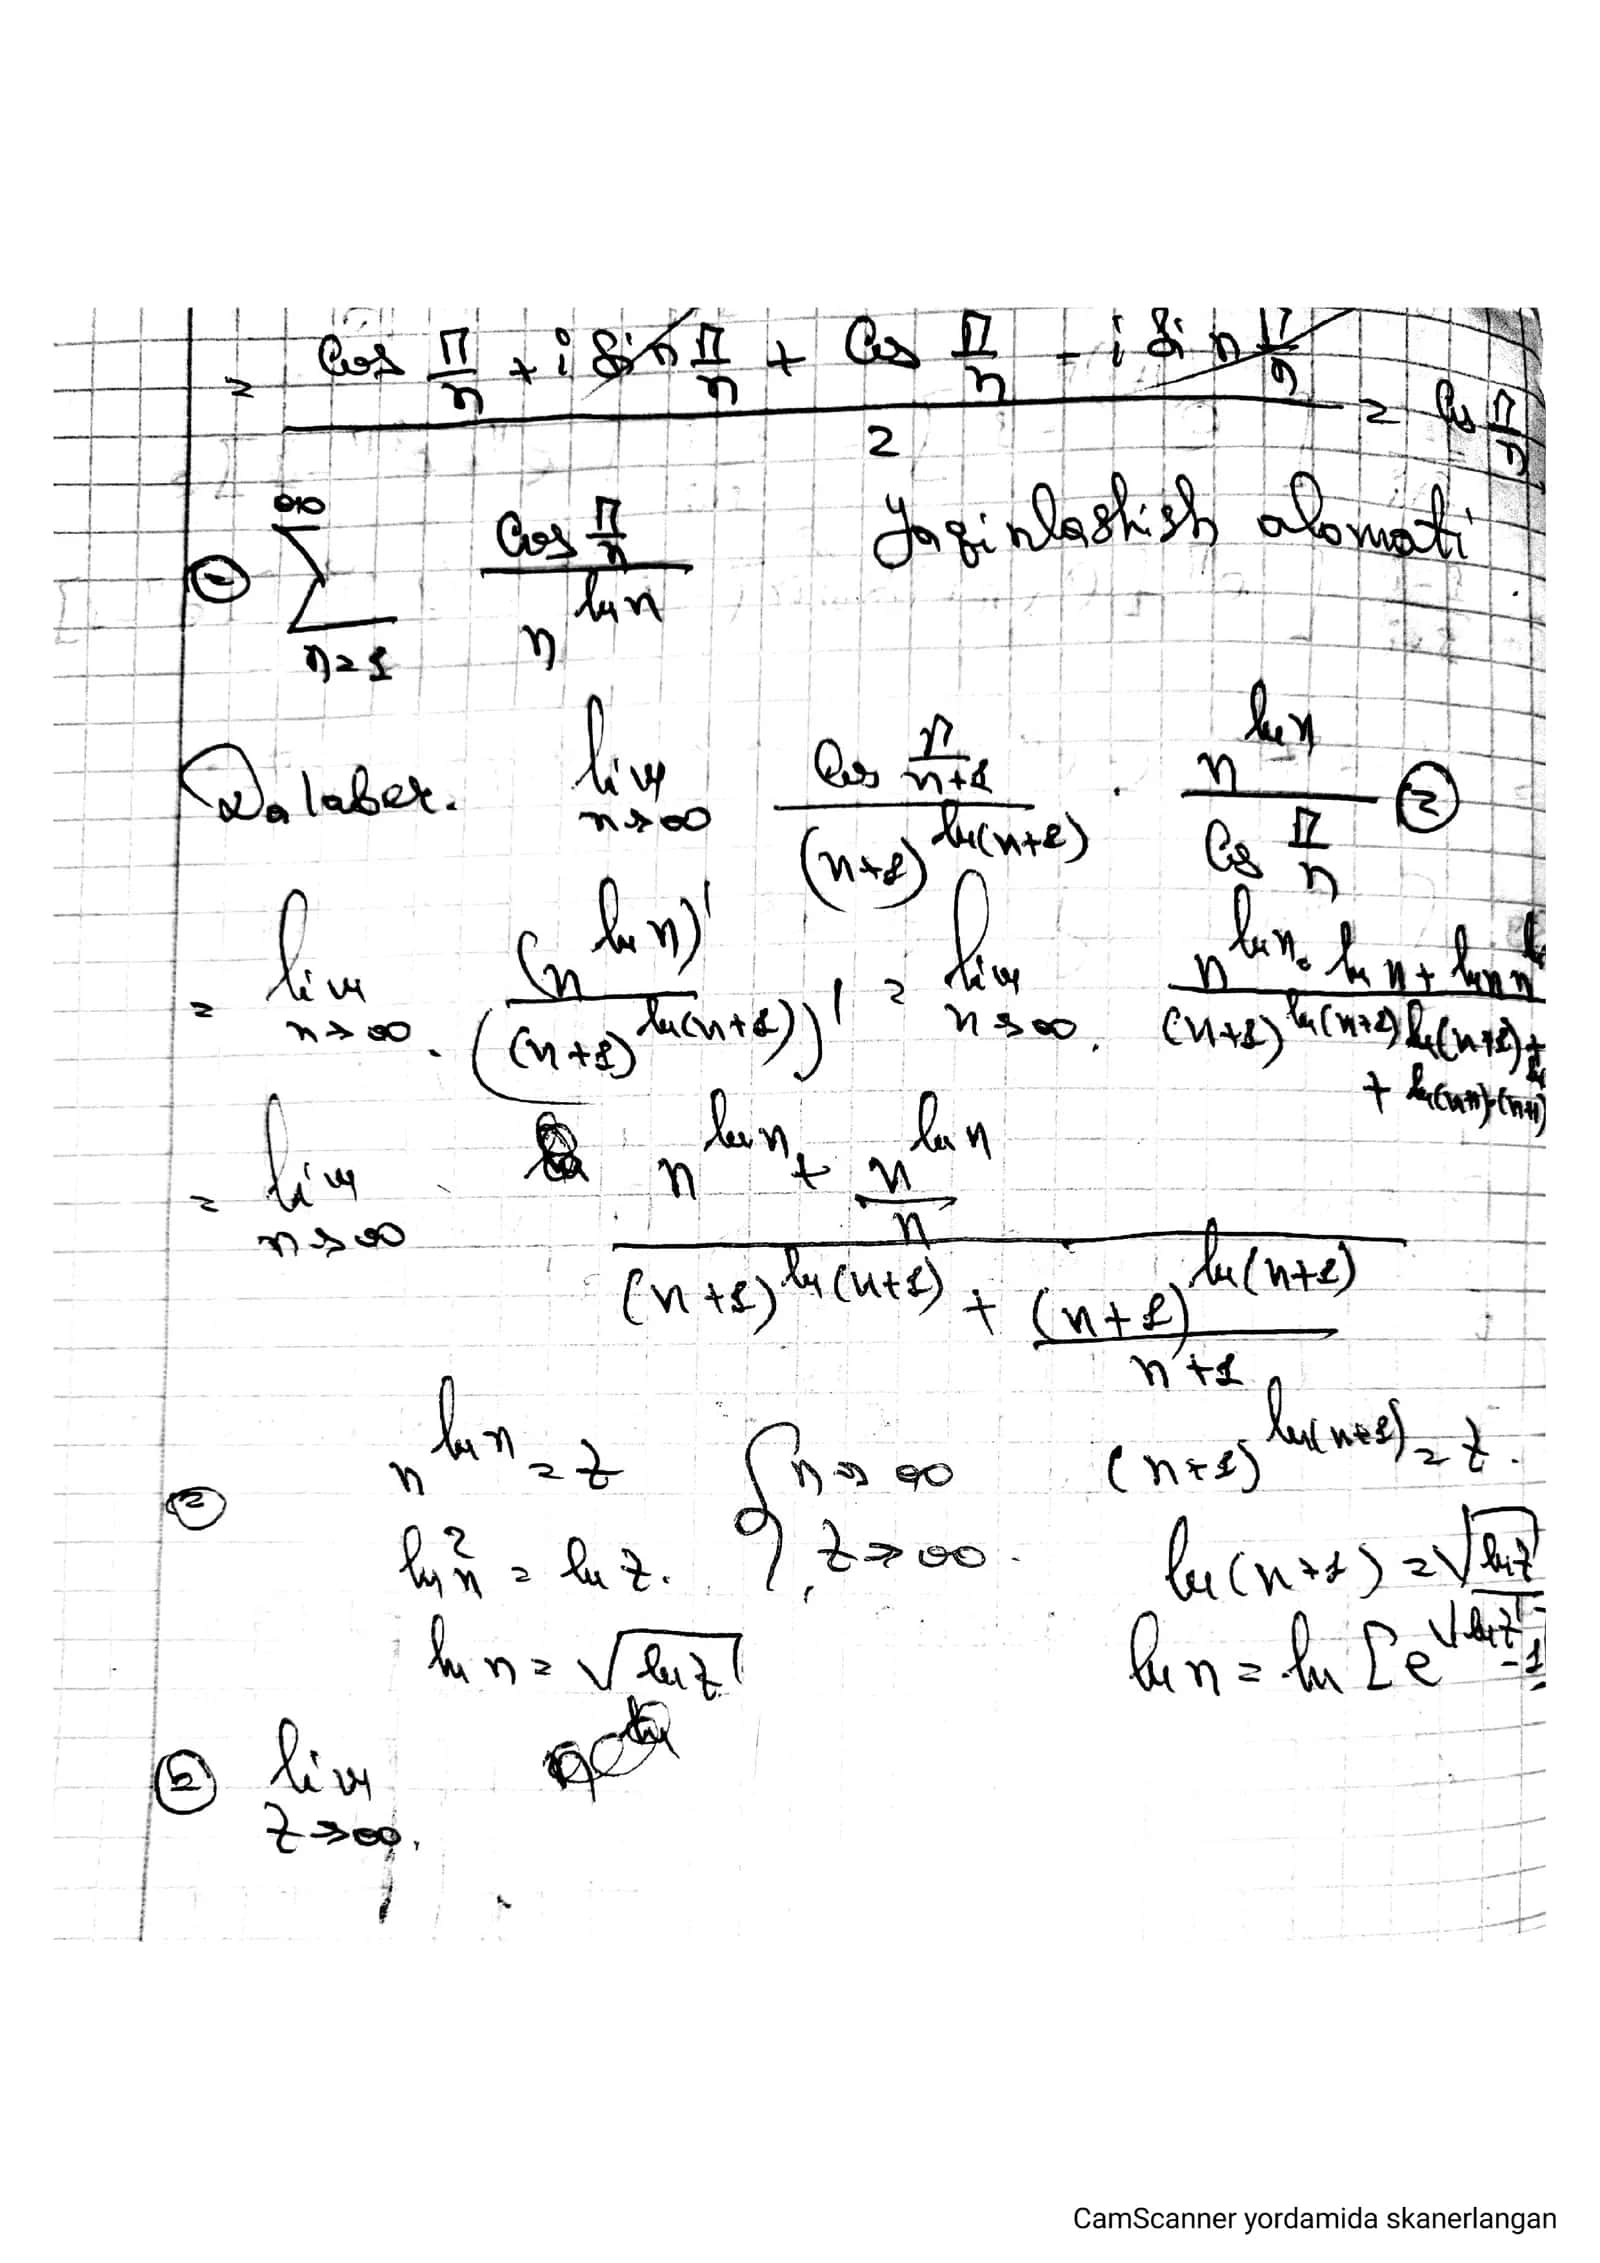 = (cos π/n + i sin π/n + cos π/n - i sin π/n) / 2 = cos π/n
∑_{n=1}^{∞} (cos π/n) / n^{ln n} Yaqinlashish alomati
Dalaber. lim_{n→∞} (cos π/(n+1)) / (n+1)^{ln(n+1)} · n^{ln n} / (cos π/n) =
= lim_{n→∞} (n^{ln n})' / ((n+1)^{ln(n+1)})' = lim_{n→∞} (n^{ln n} · ln n + ln n n) / ((n+1)^{ln(n+1)} ln(n+1) +
+ ln(n+1)·(n+1)
= lim_{n→∞} (n^{ln n} + n^{ln n}/n) / ((n+1)^{ln(n+1)} + (n+1)^{ln(n+1)}/(n+1))
= n^{ln n} = z { n→∞ (n+1)^{ln(n+1)} = z.
ln² n = ln z. z→∞. ln(n+1) = √(ln z)
ln n = √(ln z) ln n = ln [e^{√(ln z)} - 1
= lim_{z→∞}
CamScanner yordamida skanerlangan